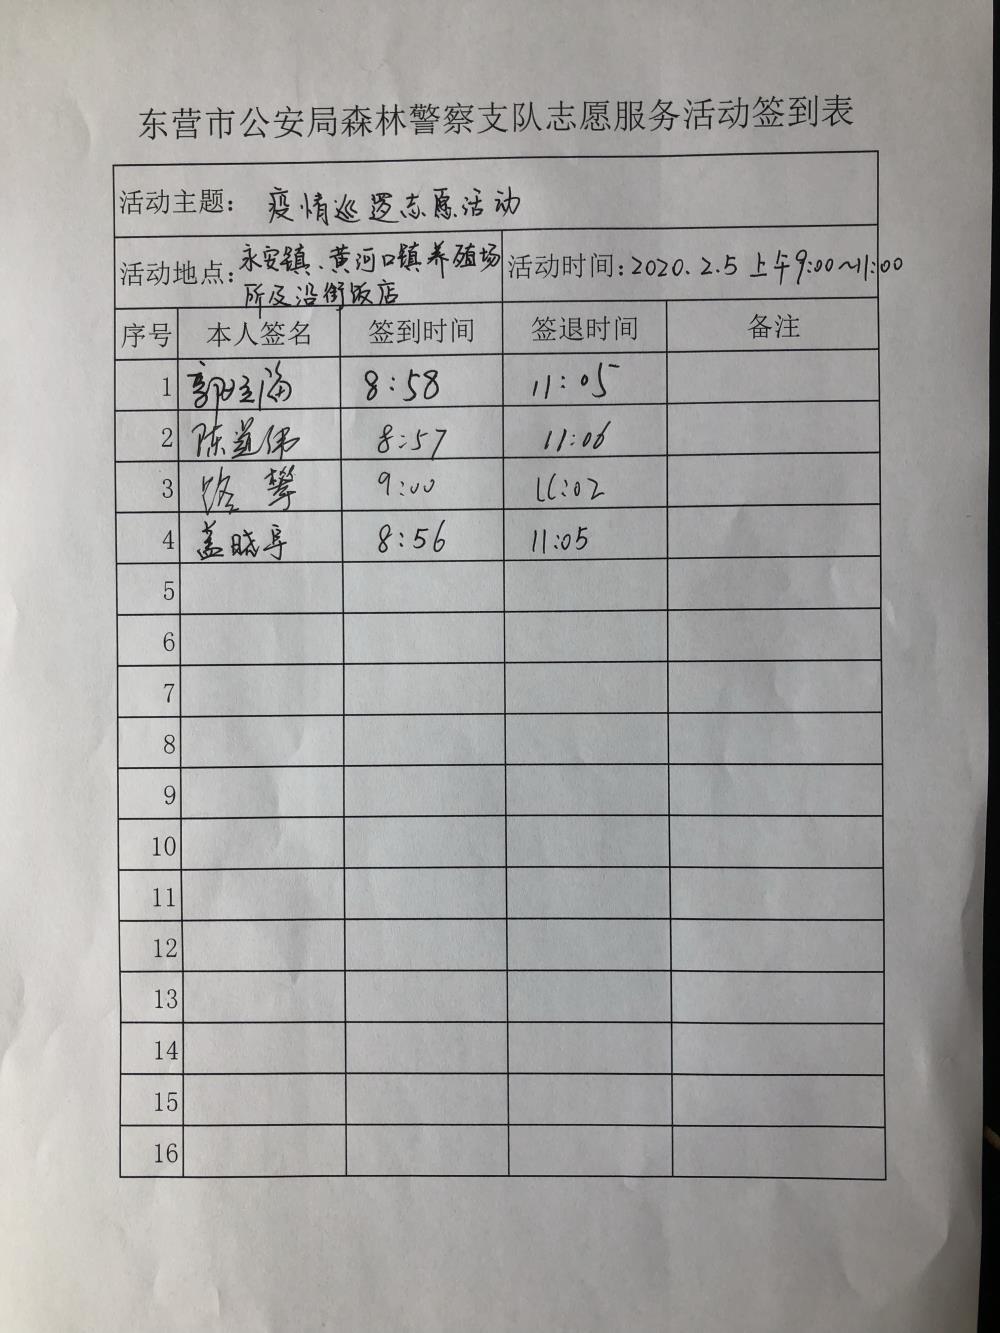 东营市公安局森林警察支队志愿服务活动签到表
活动主题： 疫情巡逻志愿活动
活动地点：永安镇、黄河口镇养殖场
所及沿街饭店
活动时间：2020.2.5 上午9:00~11:00
序号 本人签名 签到时间 签退时间 备注
1 8:58 11:05
2 陈道伟 8:57 11:06
3 路攀 9:00 11:02
4 盖晓亭 8:56 11:05
5
6
7
8
9
10
11
12
13
14
15
16